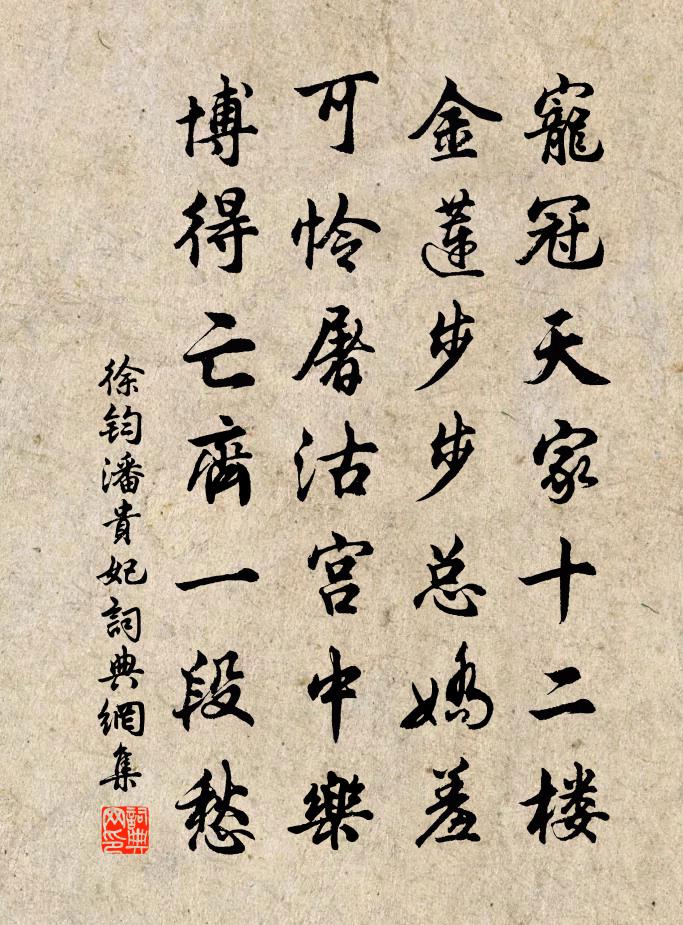 寵冠天家十二楼
金蓮步步总嬌羞
可怜屠沽宫中樂
博得亡齊一段愁
徐鈞潘貴妃詞典網集
詞典网印